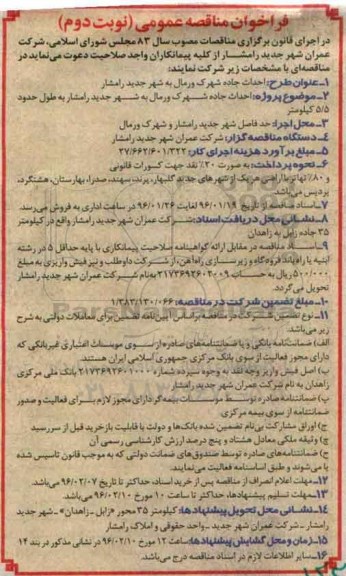 فراخوان مناقصه عمومی (نوبت دوم)
در اجرای قانون برگزاری مناقصات مصوب سال ۸۳ مجلس شورای اسلامی، شرکت
عمران شهر جدید رامشار از کلیه پیمانکاران واجد صلاحیت دعوت می‌نماید در
مناقصه‌ای با مشخصات زیر شرکت نمایند:
۱ـ عنوان طرح: احداث جاده شهرک ورمال به شهر جدید رامشار
۲ـ موضوع پروژه: احداث جاده شهرک ورمال به شهر جدید رامشار به طول حدود
۵/۵ کیلومتر
۳ـ محل اجرا: حد فاصل شهر جدید رامشار و شهرک ورمال
۴ـ دستگاه مناقصه گزار: شرکت عمران شهر جدید رامشار
۵ـ مبلغ برآورد هزینه اجرای کار: ۲۷/۶۶۲/۶۰۱/۳۲۲
۶ـ نحوه پرداخت: به صورت ۲۰٪ نقد جهت کسورات قانونی
و ۸۰٪ تهاتر با اراضی هریک از شهرهای جدید گلبهار، پرند، سهند، صدرا، بهارستان، هشتگرد،
پردیس می‌باشد.
۷ـ اسناد مناقصه از تاریخ ۹۶/۰۱/۱۹ لغایت ۹۶/۰۱/۲۶ در ساعات اداری به فروش می‌رسد.
۸ـ نشانی محل دریافت اسناد: شرکت عمران شهر جدید رامشار واقع در کیلومتر
۳۵ جاده زابل به زاهدان
۹ـ اسناد مناقصه در مقابل ارائه گواهینامه صلاحیت پیمانکاری با پایه حداقل ۵ در رشته
ابنیه یا راه باند فرودگاه و زیرسازی راه‌آهن، از شرکت داوطلب و نیز فیش واریزی به مبلغ
۵۰۰/۰۰۰ ریال به حساب ۲۱۷۳۶۹۲۶۰۲۰۰۹ به‌نام شرکت عمران شهر جدید رامشار
تحویل می‌گردد.
۱۰ـ مبلغ تضمین شرکت در مناقصه: ۱/۳۸۳/۱۳۰/۰۶۶
۱۱ـ نوع تضمین شرکت در مناقصه براساس آیین‌نامه تضمین برای معاملات دولتی به شرح
زیر می‌باشد.
الف) ضمانتنامه بانکی و یا ضمانتنامه‌های صادره از سوی موسسات اعتباری غیربانکی که
دارای مجوز فعالیت از سوی بانک مرکزی جمهوری اسلامی ایران هستند.
ب) اصل فیش واریز وجه نقد به وجوه سپرده شماره ۲۱۷۳۶۹۲۶۰۱۰۰۰ بانک ملی مرکزی
زاهدان به نام شرکت عمران شهر جدید رامشار
پ) ضمانتنامه صادره توسط موسسات بیمه‌گر دارای مجوز لازم برای فعالیت و صدور
ضمانتنامه از سوی بیمه مرکزی
ج) اوراق مشارکت بی‌نام تضمین شده بانک‌ها و دولت با قابلیت بازخرید قبل از سررسید
چ) وثیقه ملکی معادل هشتاد و پنج درصد ارزش کارشناسی رسمی آن
ح) ضمانتنامه‌های صادره توسط صندوق‌های ضمانت دولتی که به موجب قانون تاسیس شده
یا می‌شوند و طبق اساسنامه فعالیت می‌نمایند.
۱۲ـ مهلت اعلام انصراف از مناقصه پس از خرید اسناد، حداکثر تا تاریخ ۹۶/۰۲/۰۷ می‌باشد.
۱۳ـ مهلت تسلیم پیشنهادها، حداکثر تا ساعت ۱۰ مورخ ۹۶/۰۲/۱۰ می‌باشد.
۱۴ـ نشانی محل تحویل پیشنهادها: کیلومتر ۳۵ محور «زابل ـ زاهدان» ـ شهر جدید
رامشار ـ شرکت عمران شهر جدید ـ واحد حقوقی و املاک رامشار
۱۵ـ زمان و محل گشایش پیشنهادها: ساعت ۱۲ مورخ ۹۶/۰۲/۱۰ در نشانی مذکور در بند ۱۴
۱۶ـ سایر اطلاعات لازم در اسناد مناقصه درج می‌باشد.